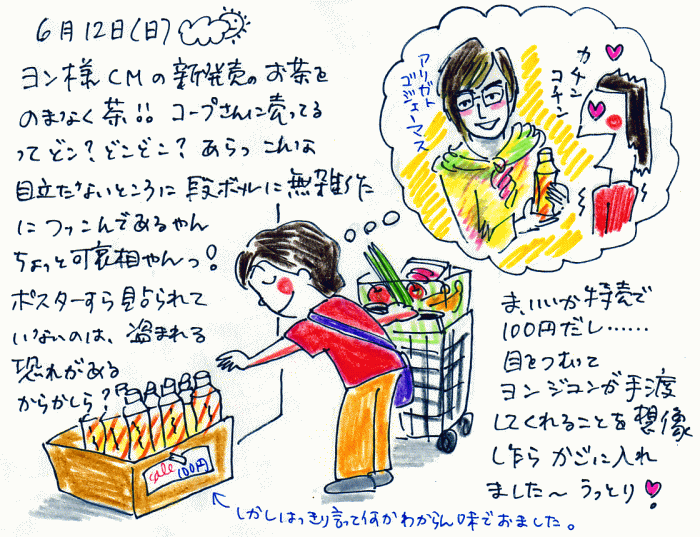 6月12日(日)
ヨン様CMの新発売のお茶を
のまなく茶!! コープさんに売ってる
ってどこ?どこどこ? あらっ こんな
目立たないところに 段ボールに無雑作
につっこんであるやん
ちょっと可哀相やんっ!
ポスターすら見占られて
いないのは、盗まれる
恐れがある
からかしら?
sale
100円
アリガト
ゴジェーマス
カチン
コチン
ま、いいか特売で
100円だし……
目をつむって
ヨンジュンが手渡
してくれることを想像
しながら かごに入れ
ました〜 うっとり
しかしはっきり言って何かわからん味でおました。